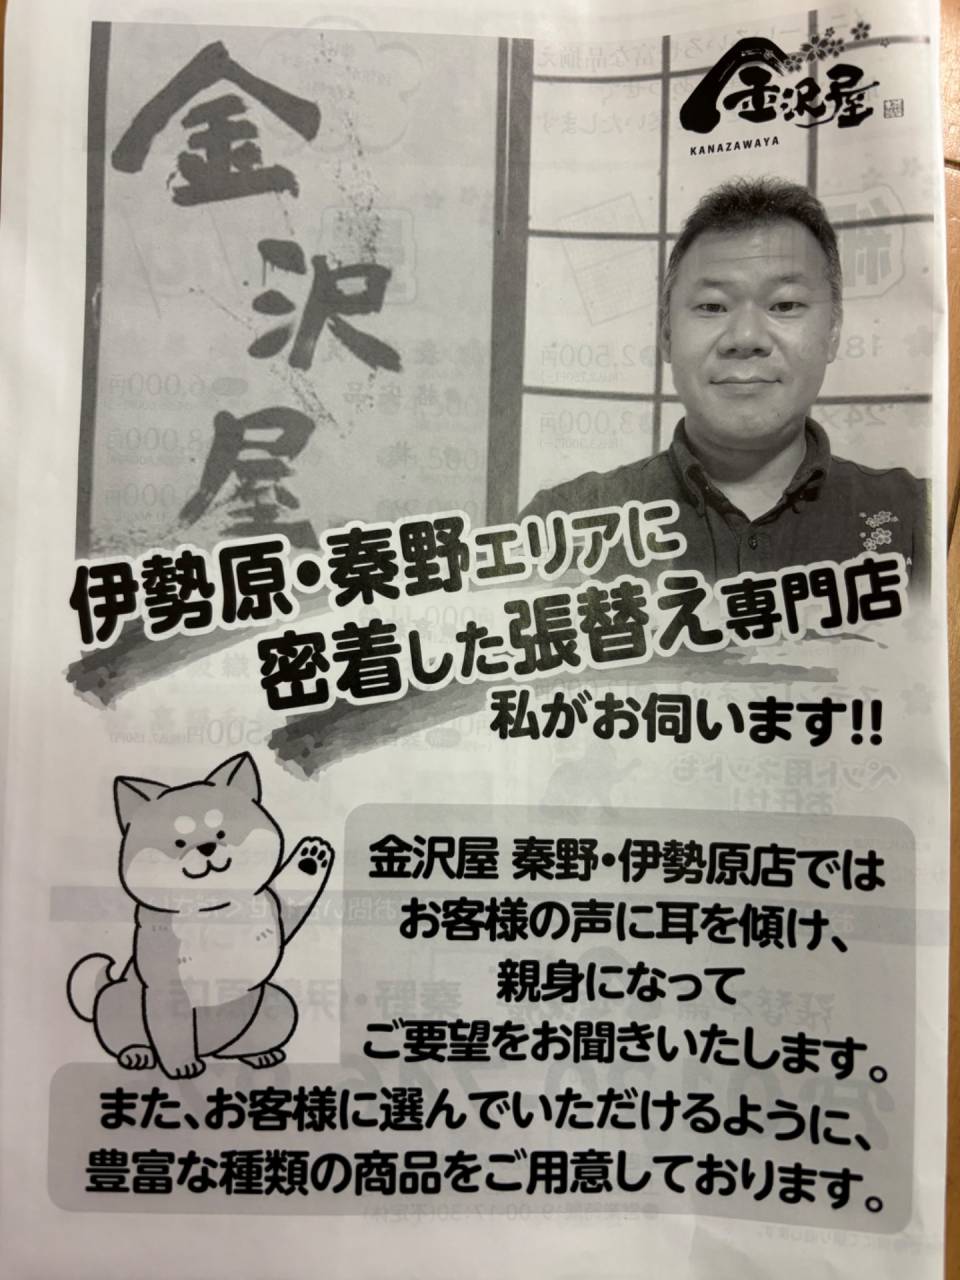 金沢屋
金沢屋
KANAZAWAYA
伊勢原・秦野エリアに
密着した張替え専門店
私がお伺います!!
金沢屋 秦野・伊勢原店では
お客様の声に耳を傾け、
親身になって
ご要望をお聞きいたします。
また、お客様に選んでいただけるように、
豊富な種類の商品をご用意しております。